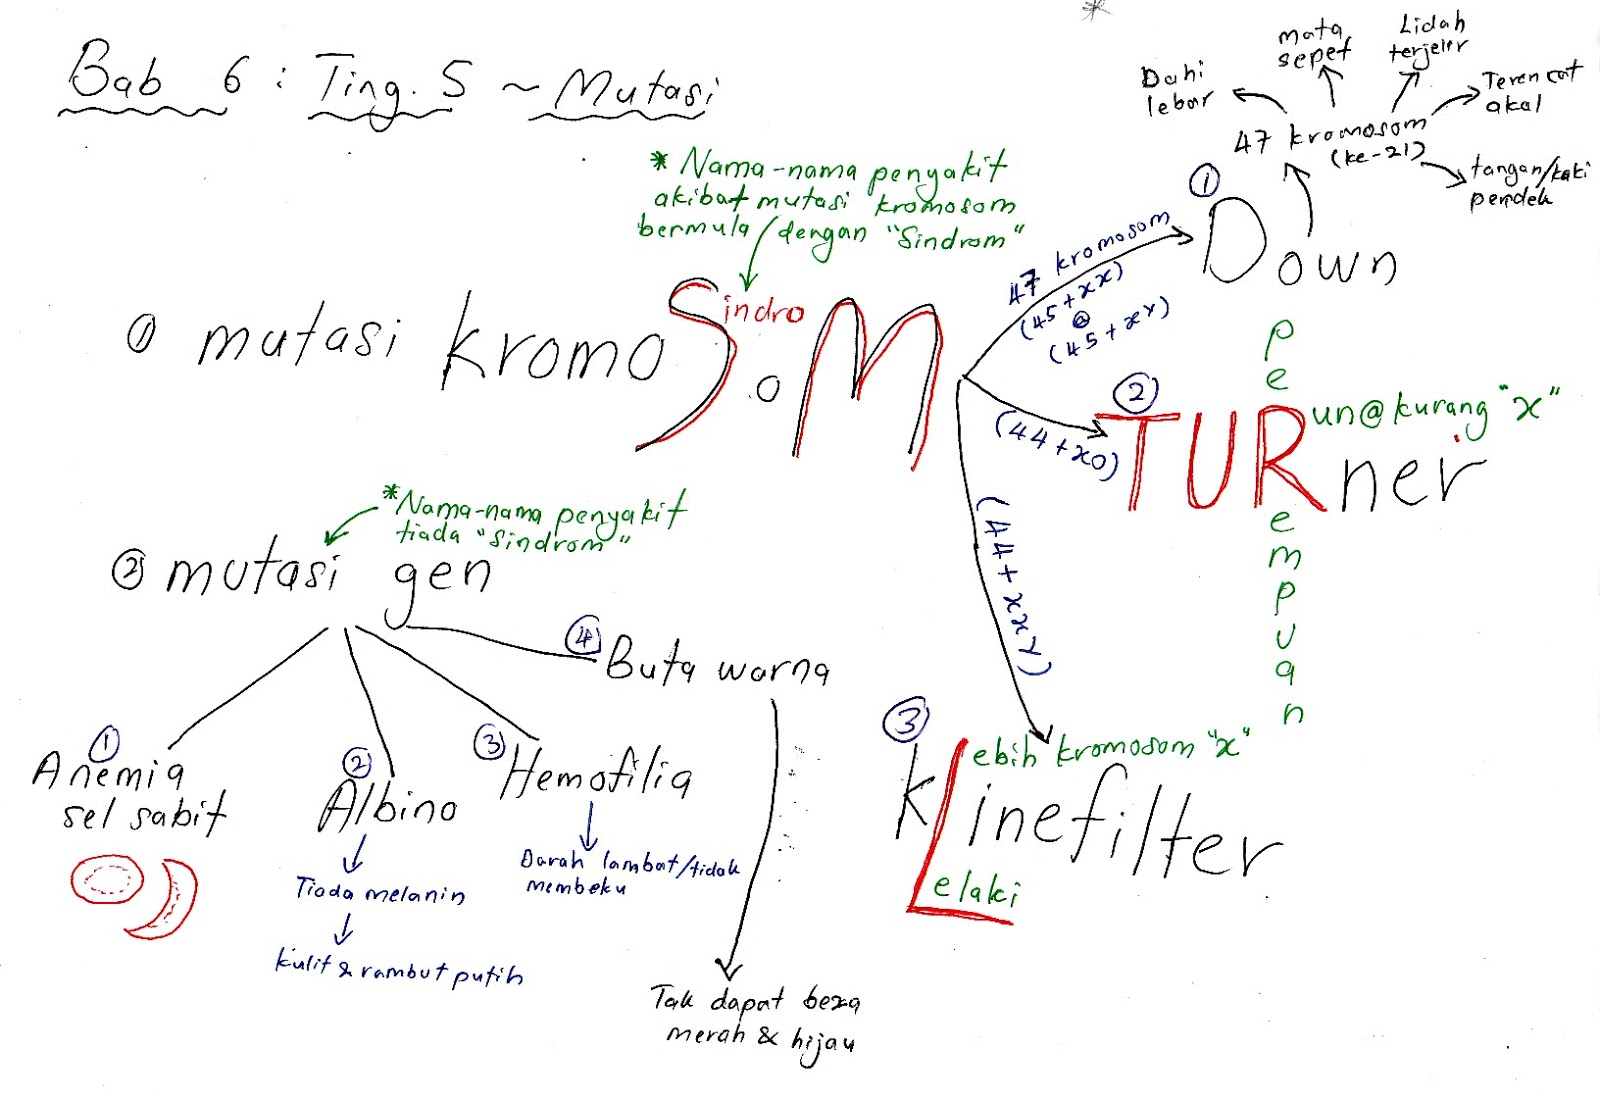 Bab 6 : Ting. 5 ~ Mutasi
*
Dahi
lebar
mata
sepet
Lidah
terjelir
Terencat
akal
47 kromosom
(ke-21)
tangan/kaki
pendek
* Nama-nama penyakit
akibat mutasi kromosom
bermula/dengan "Sindrom"
① mutasi kromoSoM
indro
47 kromosom
(45+xx)
@
(45+xY)
① Down
(44+xo)
② TURner
un@kurang "x"
perempuan
(44+xxY)
③ kLinefilter
ebih kromosom "x"
elaki
*Nama-nama penyakit
tiada "Sindrom"
② mutasi gen
① Anemia
sel sabit
② Albino
Tiada melanin
kulit & rambut putih
③ Hemofilia
Darah lambat/tidak
membeku
④ Buta warna
Tak dapat beza
merah & hijau